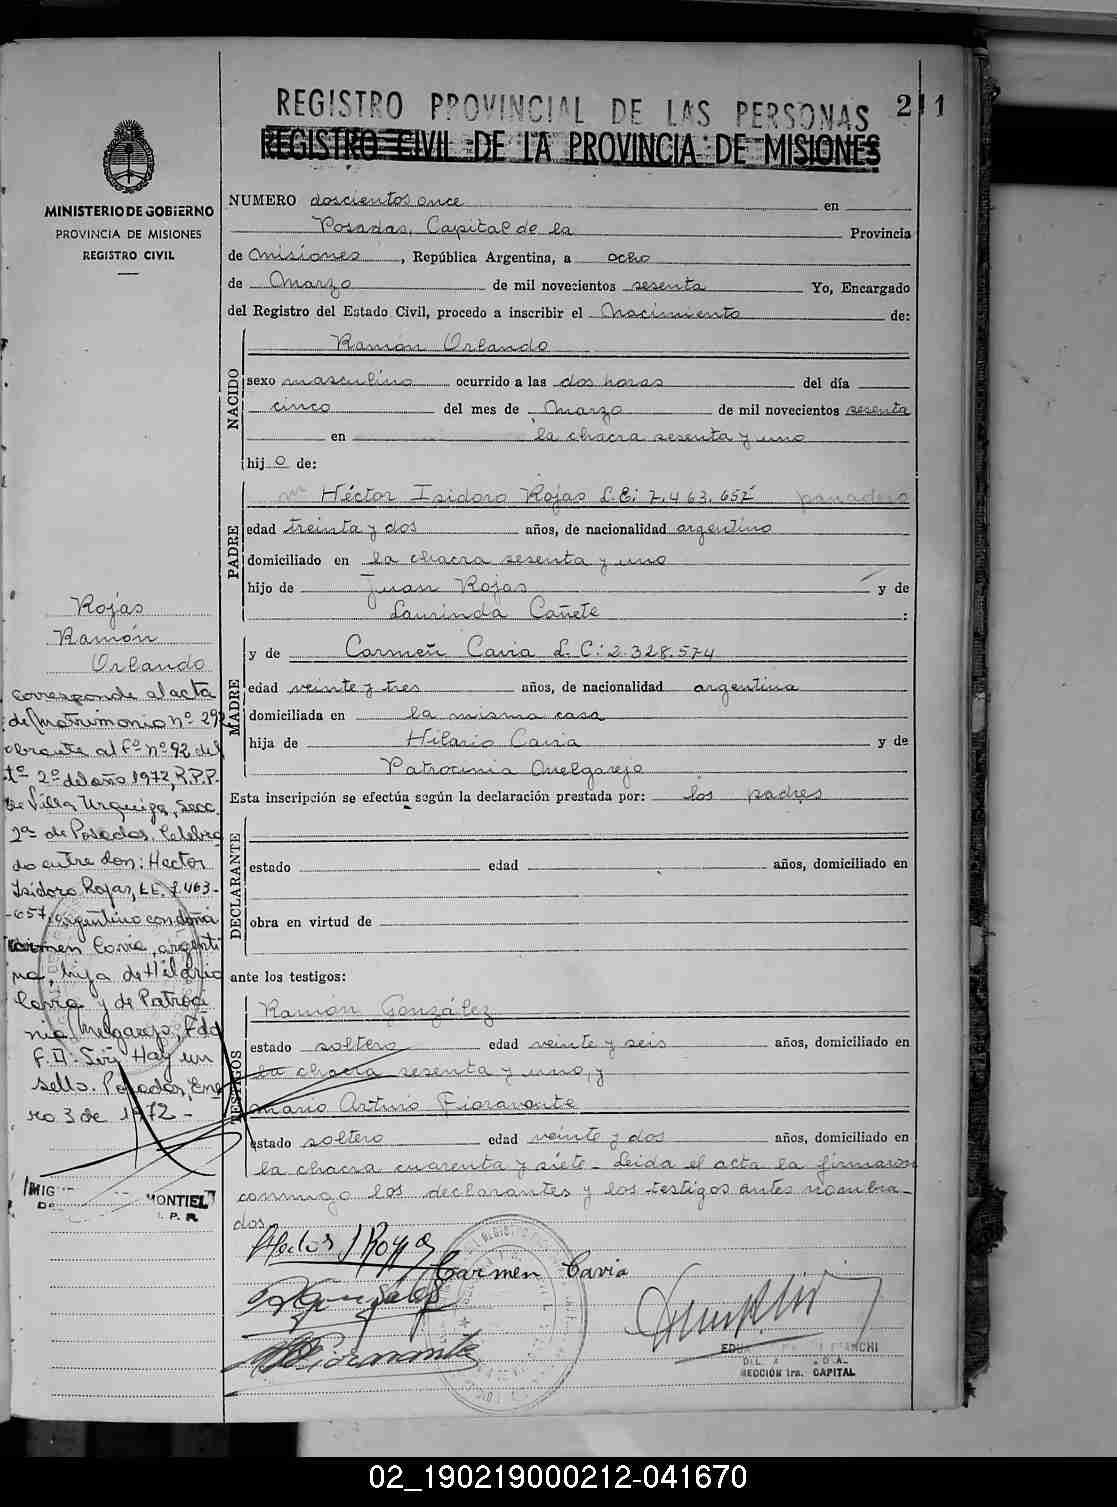 REGISTRO PROVINCIAL DE LAS PERSONAS
211
REGISTRO CIVIL DE LA PROVINCIA DE MISIONES
MINISTERIO DE GOBIERNO
PROVINCIA DE MISIONES
REGISTRO CIVIL
NUMERO doscientos once en
Posadas, Capital de la Provincia
de Misiones, República Argentina, a ocho
de Marzo de mil novecientos sesenta Yo, Encargado
del Registro del Estado Civil, procedo a inscribir el Nacimiento de:
NACIDO
Ramón Orlando
sexo masculino ocurrido a las dos horas del día
cinco del mes de Marzo de mil novecientos sesenta
en la chacra sesenta y uno
hijo de:
PADRE
Héctor Isidoro Rojas L.E: 7.463.657 panadero
edad treinta y dos años, de nacionalidad argentino
domiciliado en la chacra sesenta y uno
hijo de Juan Rojas y de
Laurinda Cañete :
MADRE
y de Carmen Cavia L.C: 2.328.574
edad veinte y tres años, de nacionalidad argentina
domiciliada en la misma casa
hija de Hilario Cavia y de
Patrocinia Melgarejo
Esta inscripción se efectúa según la declaración prestada por: los padres
DECLARANTE
estado edad años, domiciliado en
obra en virtud de
ante los testigos:
TESTIGOS
Ramón González
estado soltero edad veinte y seis años, domiciliado en
la chacra sesenta y uno, y
Mario Arturo Fioravante
estado soltero edad veinte y dos años, domiciliado en
la chacra cuarenta y siete - Leida el acta la firmaron
conmigo los declarantes y los testigos antes nombra-
dos
Hector I Rojas
Carmen Cavia
R González
SECCIÓN 1ra. CAPITAL
Rojas
Ramón
Orlando
corresponde al acta
de Matrimonio nº 292
obrante al fº nº 92 del
tº 2º del año 1972, R.P.P.
de Villa Urquiza, secc.
2ª de Posadas. Celebra
do entre don: Hector
Isidoro Rojas, L.E. 7.463-
-657, argentino con doña
Carmen Cavia, argenti
na, hija de Hilario
Cavia y de Patroci
nia Melgarejo, Fdo
Hay un
sello. Posadas, Ene
ro 3 de 1972 -
MONTIEL
02_190219000212-041670